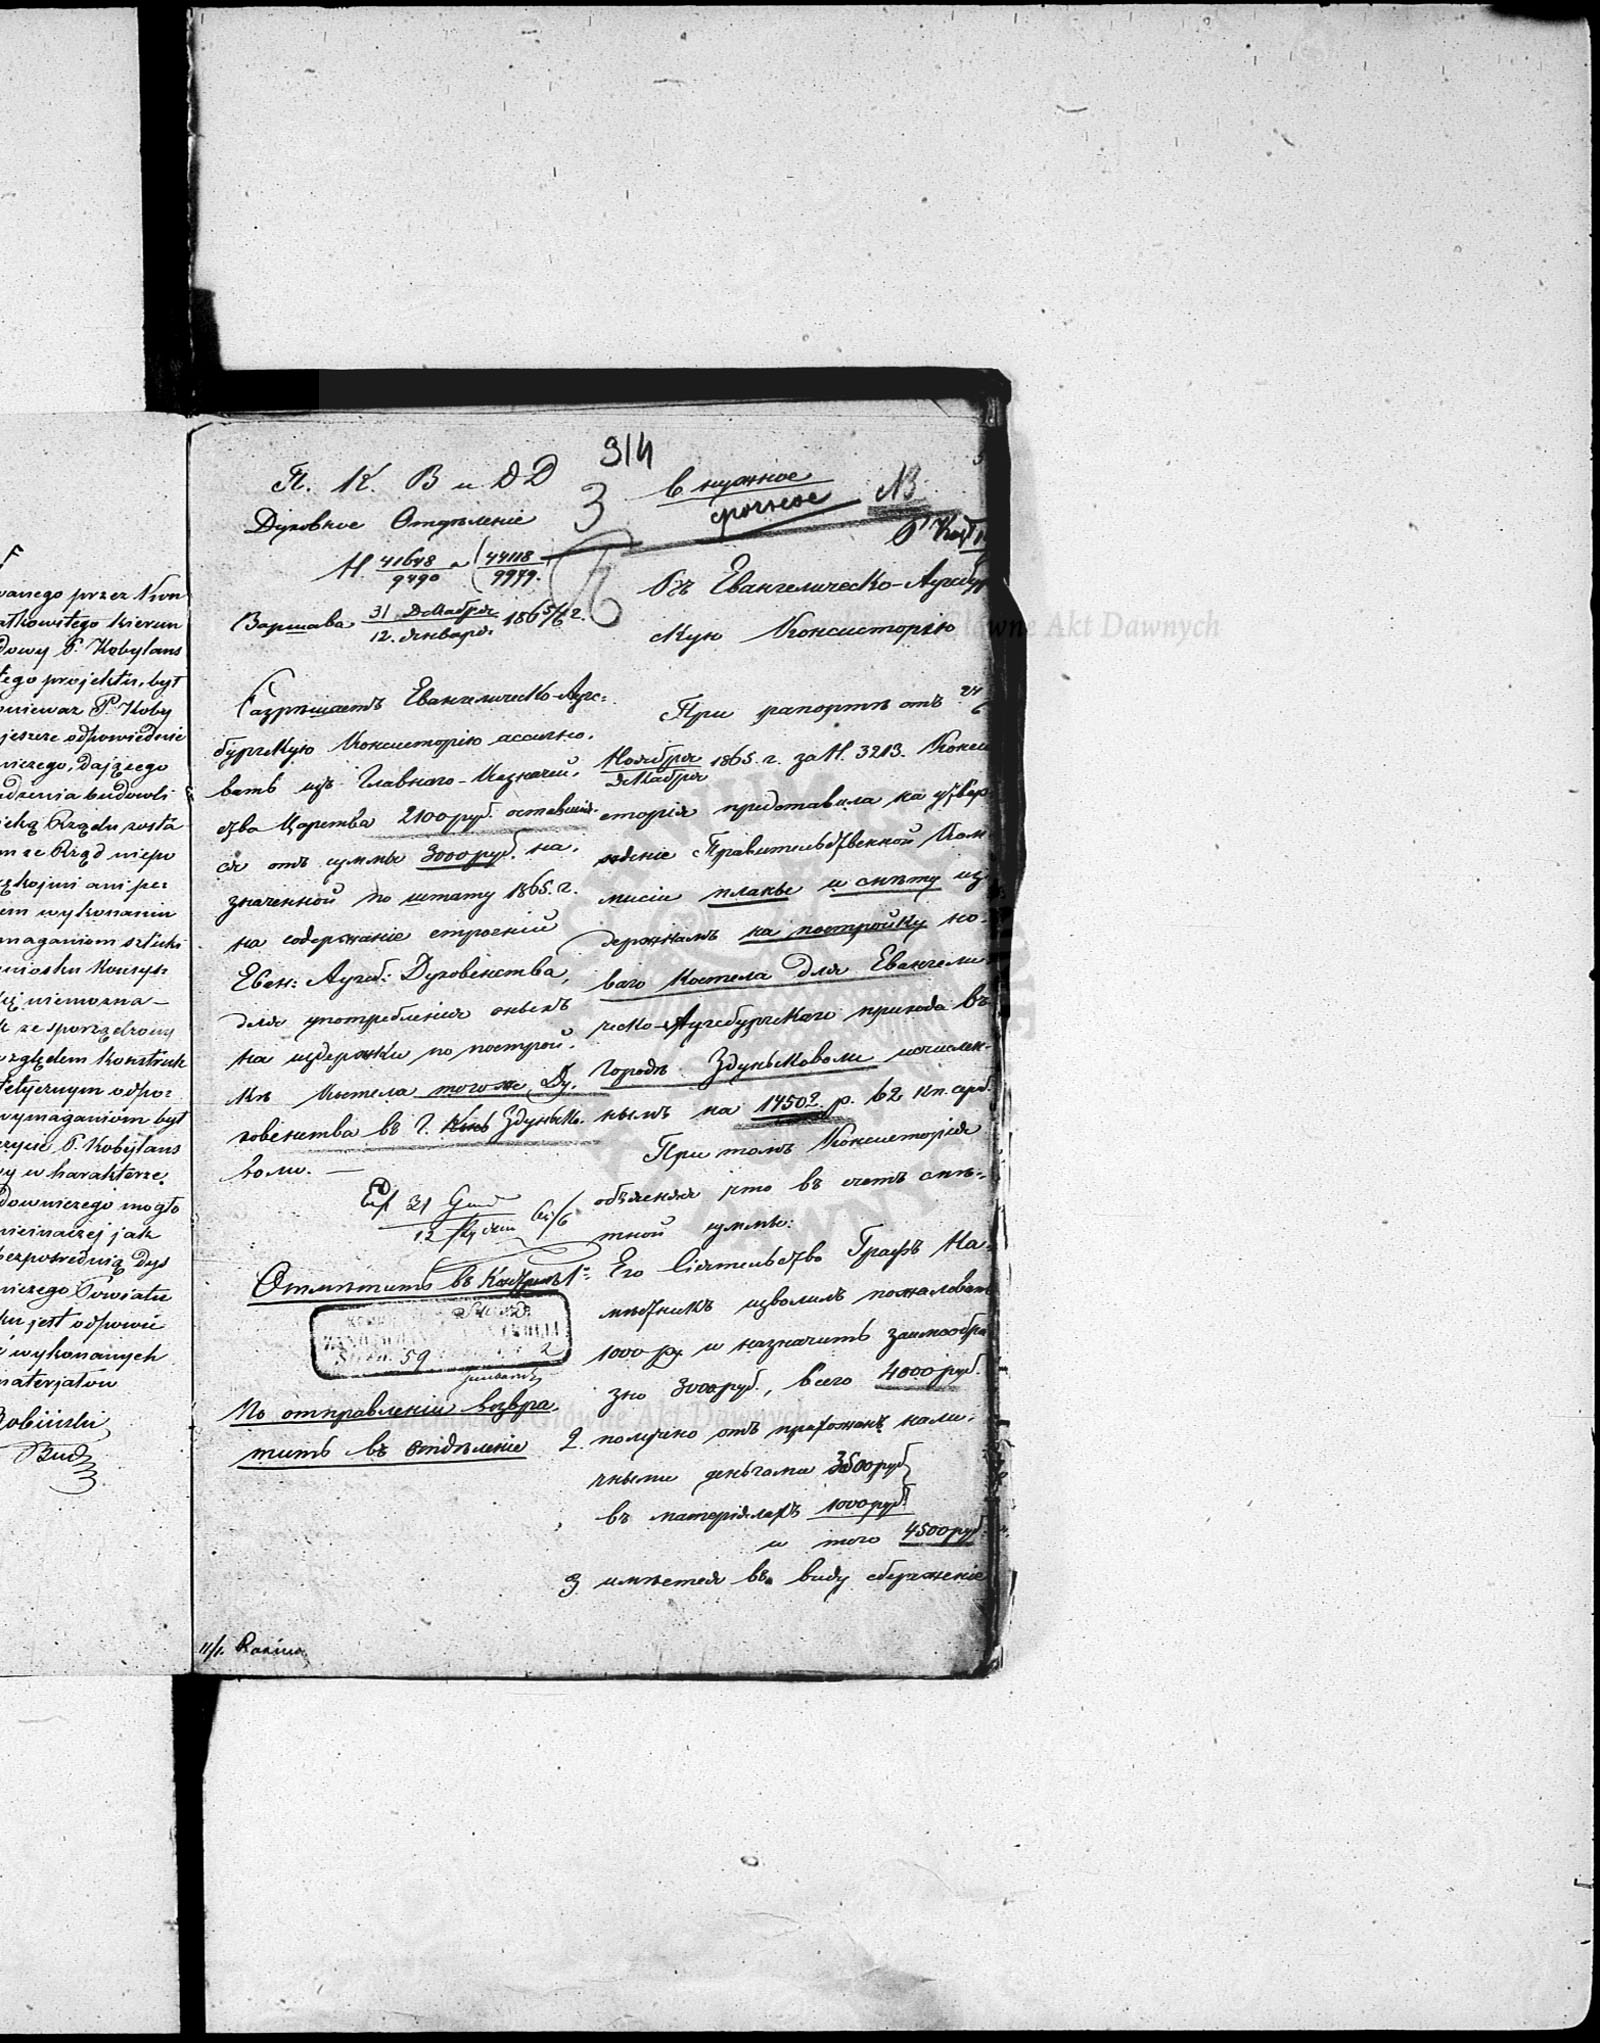 wanego przez Kon
atkowstego kierun
dowy P. Kobylans
tego projektu, był
oniewaz P. Koby
jeszcze odpowiednie
niczego, dającego
udzenia budowli
ieką Rządu zosta
m ze Rząd niepo
em wykonaniu
maganiom sztuki
niosku Konsys
ię niemozna —
k ze sporządzony
względem konstruk
tetycznym odpo=
wymaganiom był
P. Kobylans
y w harakterze
downiczego mogło
nieinaczej jak
bezposrednią Dys
niczego Powiatu
ku jest odpowie
i wykonanych
materjatow
Bud
314
П. К. В и Д Д
Духовное Отделѣніе
3
в нужное
срочное
NB.
Н. 41648/9490 и (44118/9979.
Варшава 31 Декабря/12. Января 1865/6 г.
Въ Евангелическо-Аугсбур
скую Консисторію
Разрѣшаетъ Евангелическо-Аугс=
бургскую Консисторію ассигно=
вать изъ Главнаго-Казначей=
ства Царства 2100 руб. оставшія=
ся отъ суммы 3000 руб. на=
значенной по штату 1865. г.
на содержаніе строеній
Еван: Аугсб: Духовенства,
для употребленія оныхъ
на издержки по построй=
кѣ костела тогоже Ду=
ховенства въ г. Здуньско=
воли. —
31 Grud
12
65/6
Отмѣтить въ
59
2
По отправленіи возвра=
тить въ отдѣленіе
При рапортѣ отъ 24/6
Ноября/Декабря 1865. г. за Н. 3213. Конси
сторія представила на утвер=
жденіе Правительственной Ком
мисіи планы и смѣту из
держкамъ на постройку но=
ваго костела для Евангели
ческо-Аугсбургскаго прихода въ
городѣ Здуньсковоли исчислен=
нымъ на 14502. р. 62 кп. сереб.
При томъ Консисторія
объясняя что въ счетъ смѣ=
тной суммы:
1= Его Сіятельство Графъ На=
мѣстникъ изволилъ пожаловать
1000 ру. и назначить заимообра
зно 3000 руб., всего 4000 руб.
2. получено отъ прихожанъ нали=
чными деньгами 3500 руб
въ матеріялахъ 1000 руб
и того 4500 руб.
3. имѣется въ виду сбереженіе
Archiwum Główne Akt Dawnych
Główne Akt Dawnych